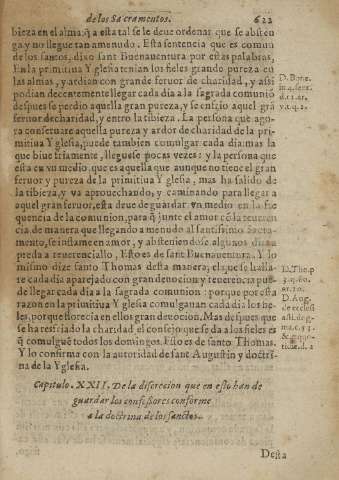 de los Sacramentos. 622
bieza en el alma: q̃ a esta tal se le deue ordenar que se absten
ga, y no llegue tan amenudo. Esta sentencia que es comun
de los santos, dixo sant Buenauentura por estas palabras,
En la primitiua Yglesia tenian los fieles grande pureza en
las almas, y ardian con grande feruor de charidad, y assi
podian decentemente llegar cada dia a la sagrada comunió
despues se perdio aquella gran pureza, y se enfrio aquel grã
feruor de charidad, y entro la tibieza. La persona que ago-
ra conseruare aquella pureza y ardor de charidad de la pri-
mitiua Yglesia, puede tambien comulgar cada dia: mas la
que biue friamente, lleguese pocas vezes: y la persona que
esta en vn medio, que es aquella que aunque no tiene el gran
feruor y pureza de la primitiua Yglesia, mas ha salido de
la tibieza, y va aprouechando, y caminando para llegar a
aquel gran feruor, esta deue de guardar vn medio en la fre
quencia de la comunion, para q̃ junte el amor có la reueren
cia, de manera que llegando a menudo al santissimo Sacra-
mento, se inflame en amor, y absteniendose algunos dias a
prenda a reuerenciallo, Esto es de sant Buenauentura. Y lo
mismo dize santo Thomas desta manera, el que se halla-
re cada dia aparejado con gran deuocion y reuerencia pue-
de llegar cada dia a la sagrada comunion: porque por esta
razon en la primitiua Yglesia comulgauan cada dia los fie-
les, porque florecia en ellos gran deuocion. Mas despues que
se ha resfriado la charidad el consejo que se da a los fieles es
q̃ comulguẽ todos los domingos. Esto es de santo Thomas.
Y lo confirma con la autoridad de sant Augustin y doctri
na de la Yglesia.
D. Bona.
in 4. sent.
d. 12. ar.
D. Tho. p
3. q. 80.
ar. 10.
D. Aug.
de ecclesi
asti. dog-
ma. c. 53.
Capitulo. XXII. De la discrecion que en esto han de
guardar los confessores conforme
a la doctrina de los sanctos.
Desta